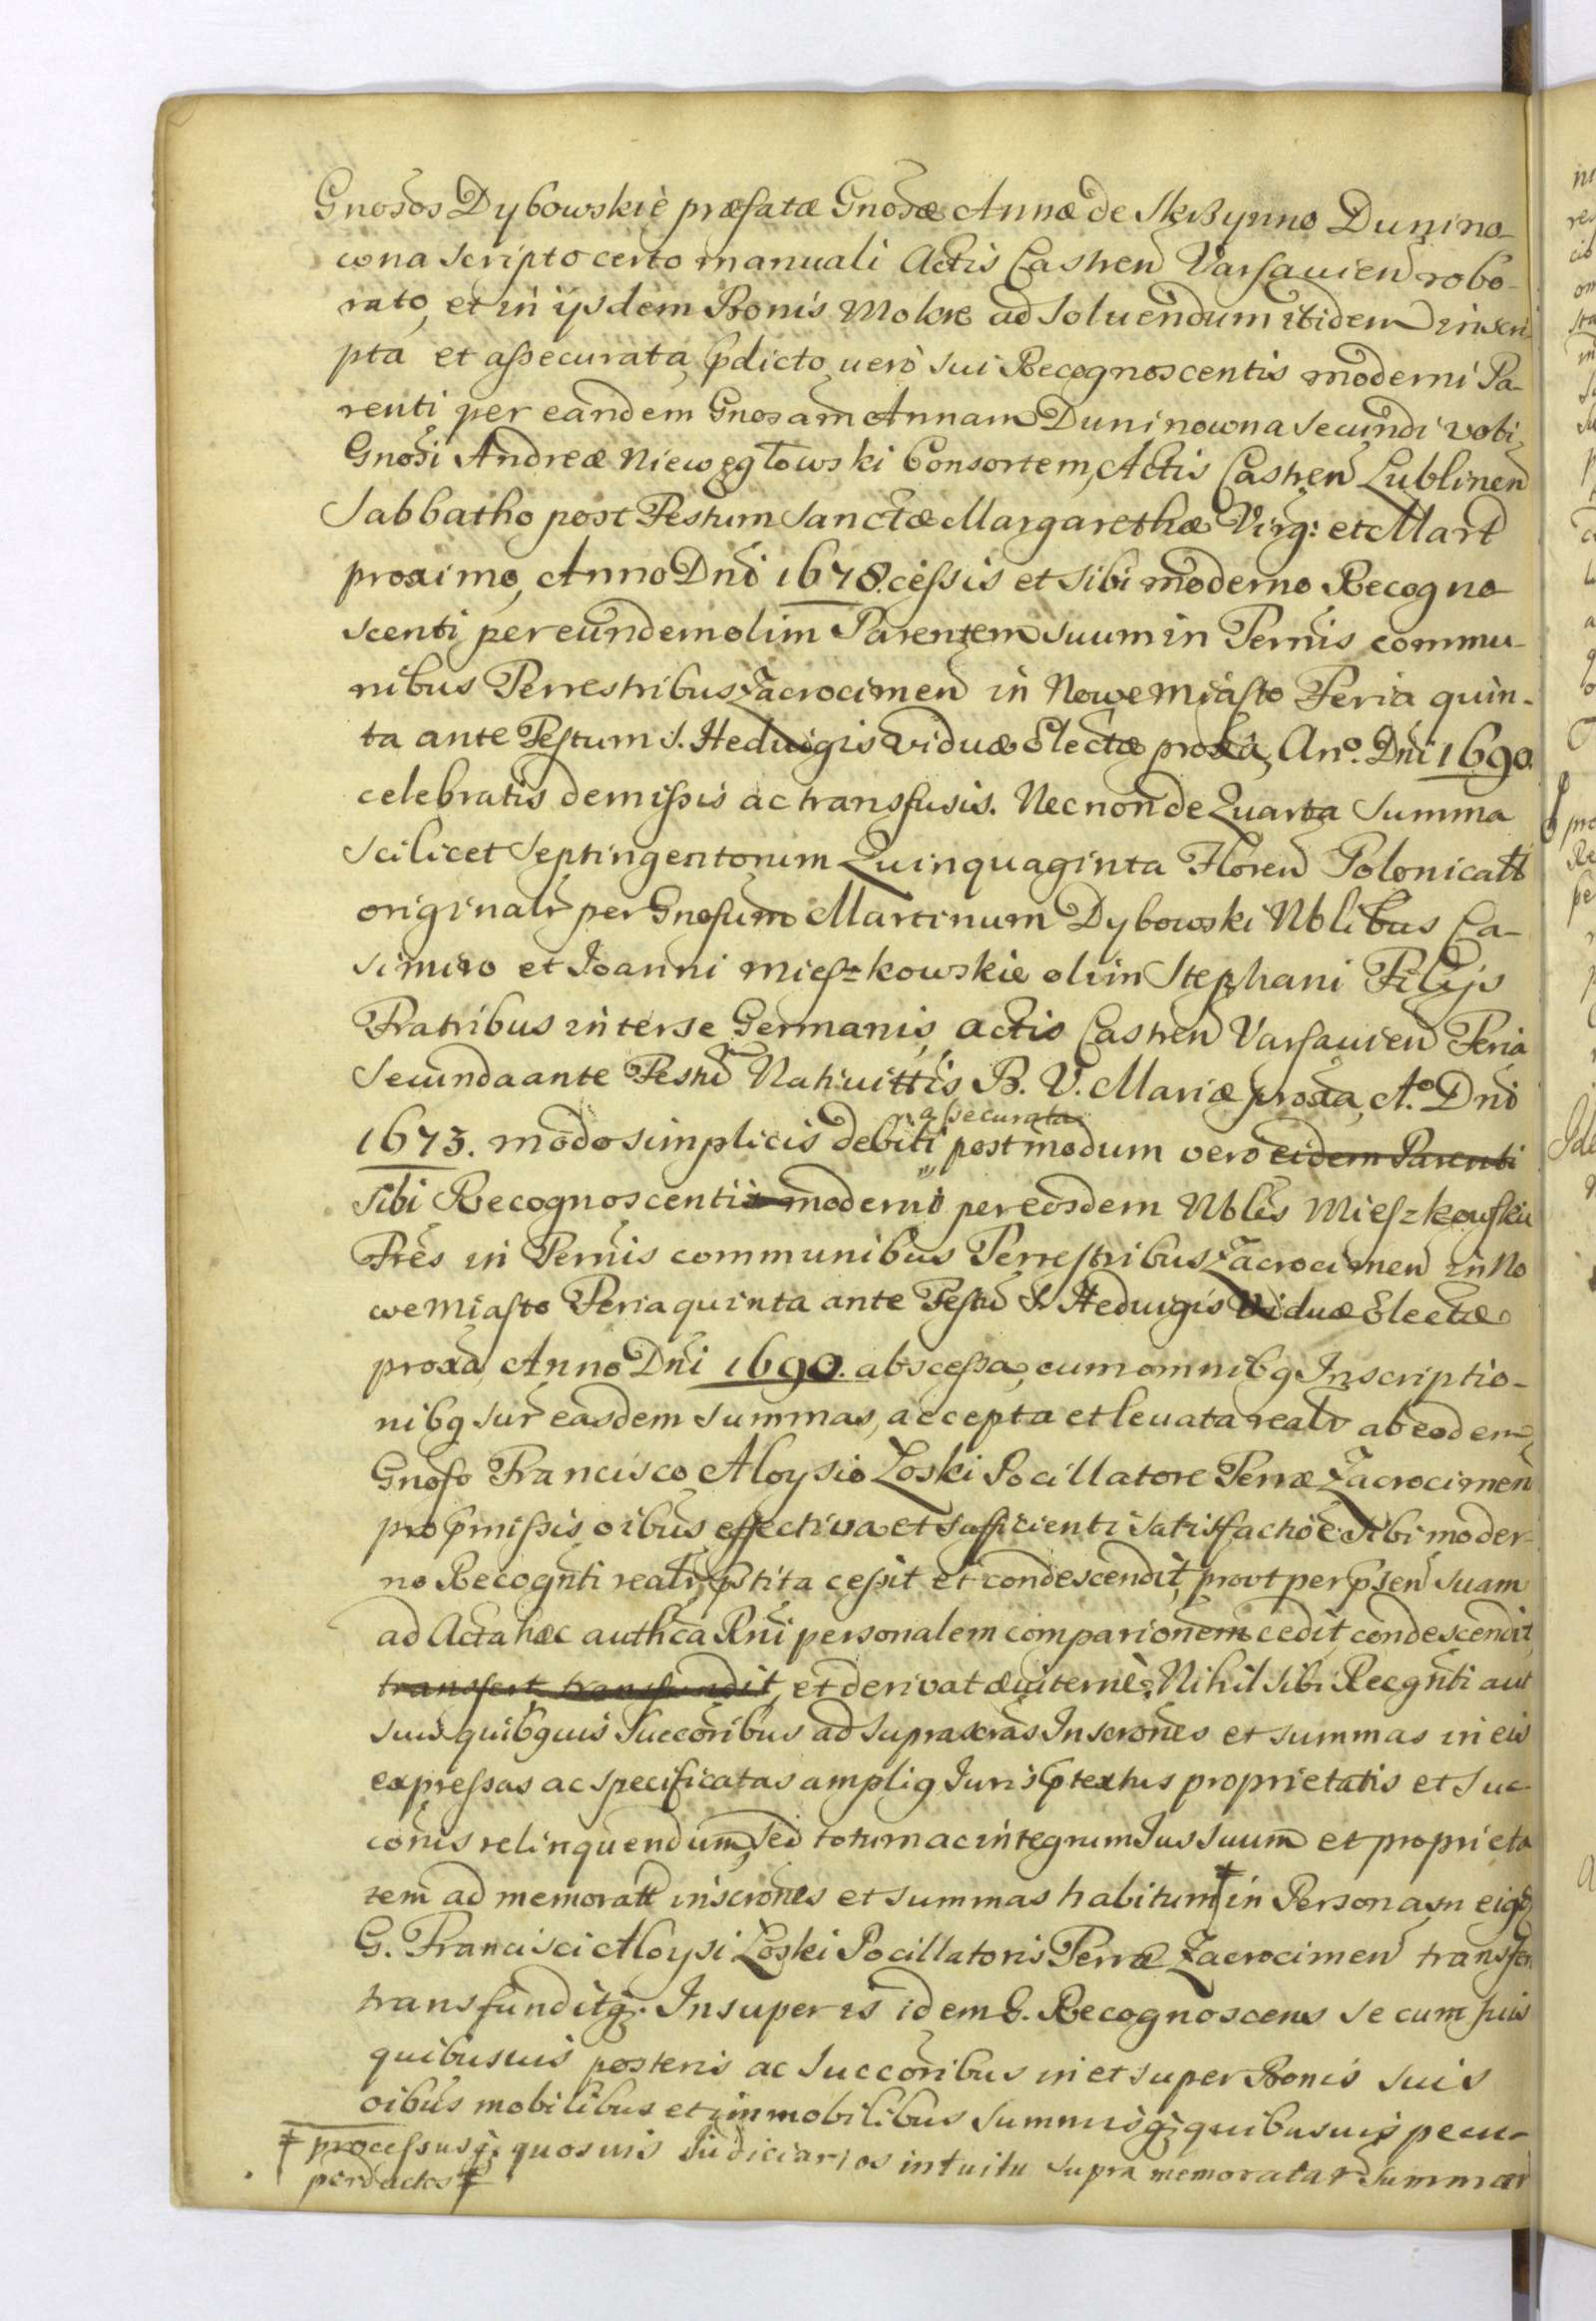 Gnosos Dybowskie præfatæ Gnosæ Annæ de Skrzynno Dunino-
wna scripto certo manuali Actis Castren Varsavien robo-
rato, et in ijsdem Bonis Mokre ad soluendum ibidem inscri
pta et assecurata, pdicto vero sui Recognoscentis moderni Pa-
renti per eandem Gnosam Annam Duninowna secundi voti,
Gnosi Andreæ Nieweglowski Consortem, Actis Castren Lublinen
Sabbatho post Festum Sanctæ Margarethæ Virg: et Mart
proximo, Anno Dni 1678. cessis et sibi moderno Recogno-
scenti per eundem olim Parentem suum in Ternis commu-
nibus Terrestribus Zacrocimen in Nowe Miasto Feria quin-
ta ante Festum S. Heduigis Viduæ Electæ proxa, Ano. Dni 1690.
celebratis demissis ac transfusis. Nec non de Quarta Summa
scilicet Septingentorum Quinquaginta Floren Polonicalt
originalr per Gnosum Martinum Dybowski Nblibus Ca-
simiro et Joanni Mieszkowskie olim Stephani Filijs
Fratribus inter se Germanis, actis Castren Varsavien Feria
Secunda ante Festu Nativittis B. V. Mariæ proxa, Ao. Dni
1673. modo simplicis debiti assecurata postmodum vero eidem Parenti
sibi Recognoscenti moderno per eosdem Nbles Mieszkowskie
Fres in Ternis communibus Terrestribus Zacrocimen in No
we Miasto Feria quinta ante Festu S. Heduigis Viduæ Electæ
proxa, Anno Dni 1690. abscessa, cum omnibq Inscriptio-
nibq supr easdem summas, accepta et levata realr ab eodem
Gnoso Francisco Aloysio Zoski Pocillatore Terræ Zacrocimen
pro pmissis oibus effectiva et sufficienti satisfactioe sibi moder-
no Recognti realr pstita cessit et condescendit, prout per psen suam
ad Acta hæc authca Rni personalem comparionem cedit condescendit,
transfert transfundit, et derivat æviterne; Nihil sibi Recgnti aut
suis quibquis Succoribus ad suprascras Inscrones et summas in eis
expressas ac specificatas ampliq Juris ptextus proprietatis et suc-
conis relinquendum, sed totum ac integrum Jus suum et proprieta
tem ad memoratt inscrones et summas habitum ‡ in Personam eiqd
G. Francisci Aloysi Zoski Pocillatoris Terræ Zacrocimen transfert
transfunditq;. Insuper is idem G. Recognoscens se cum suis
quibusuis posteris ac Succoribus in et super Bonis suis
oibus mobilibus et immobilibus Summisq; quibusuis pecu-
‡ processusq; quosuis Iudiciarios intuitu supra memoratar Summar
perductos ‡